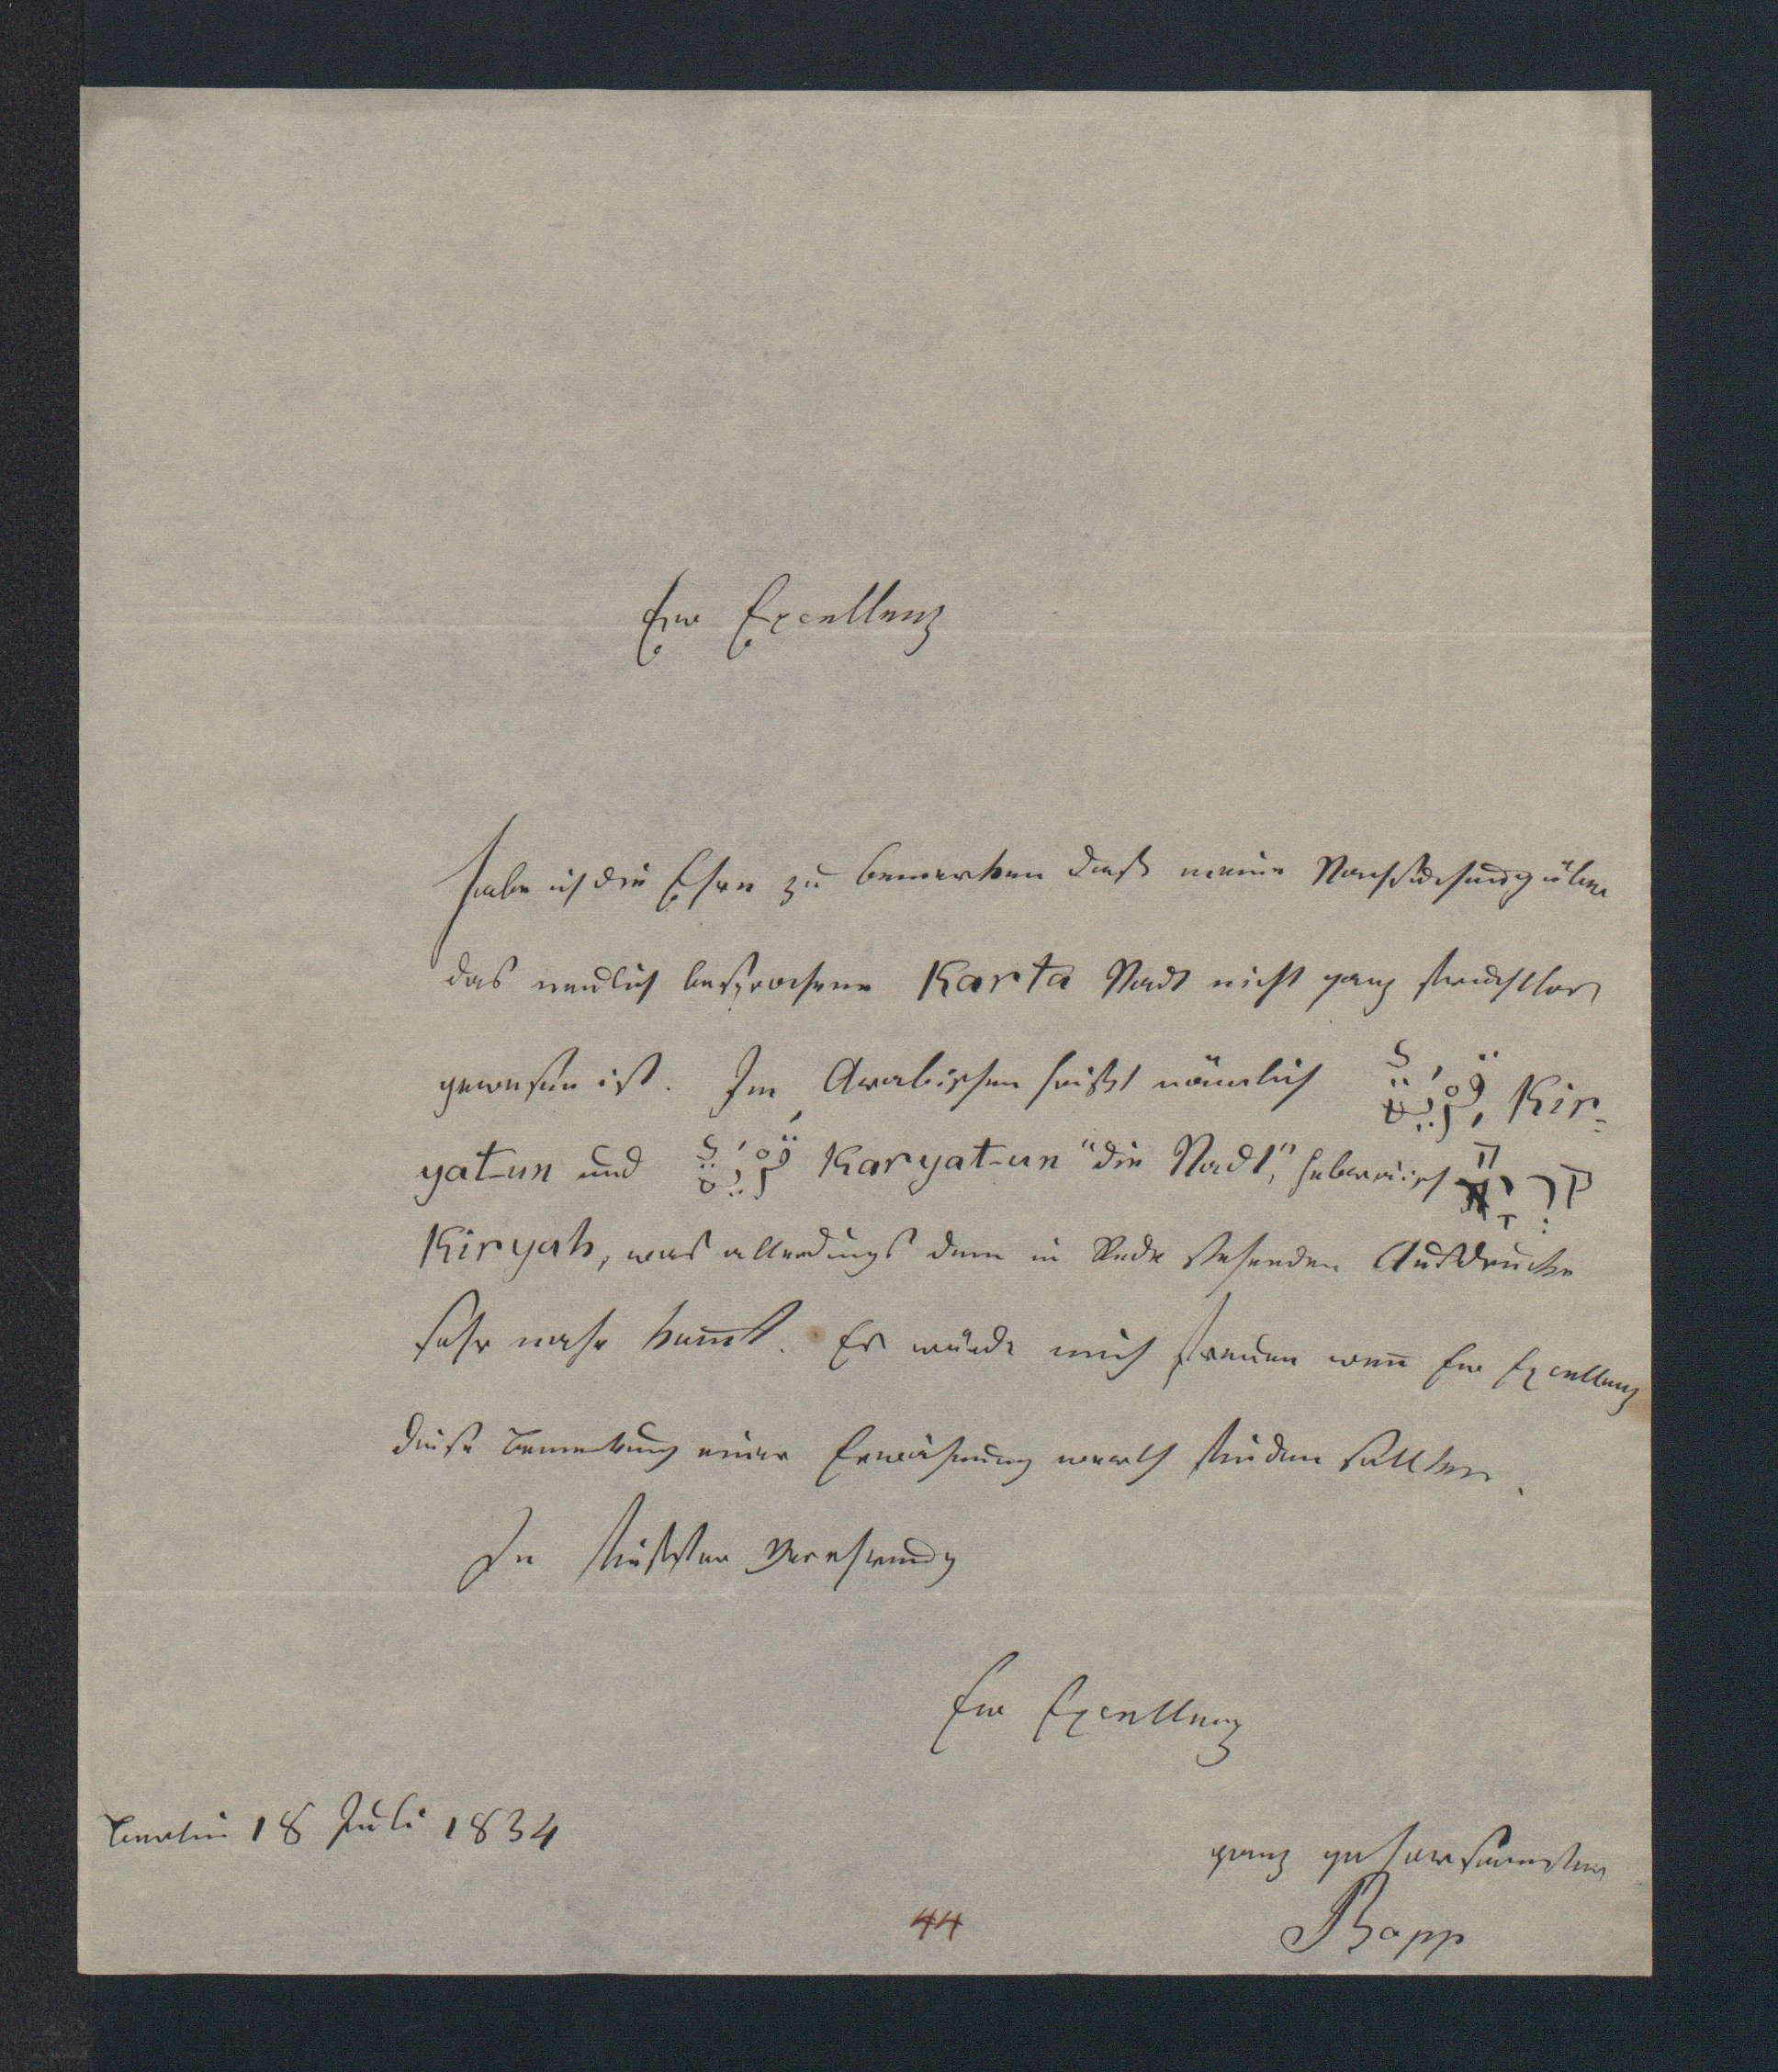 Ew Excellenz
habe ich die Ehre zu bemerken daß meine Nachsuchung über
das neulich besprochene Karta Stadt nicht ganz fruchtlos
gewesen ist. Im Arabischen heißt nämlich قِرْيَةٌ, Kir-
yat-un und قَرْيَةٌ Karyat-un "die Stadt", hebräisch קִרְיָה
Kiryah, was allerdings dem in Rede stehenden Ausdrucke
sehr nahe kom̄t. Es würde mich freuen wen̄ Ew Excellenz
diese Bemerkung einer Erwähnung werth finden sollten.
In tiefster Verehrung
Ew Excellenz
Berlin 18 Juli 1834
ganz gehorsamster
Bopp
44